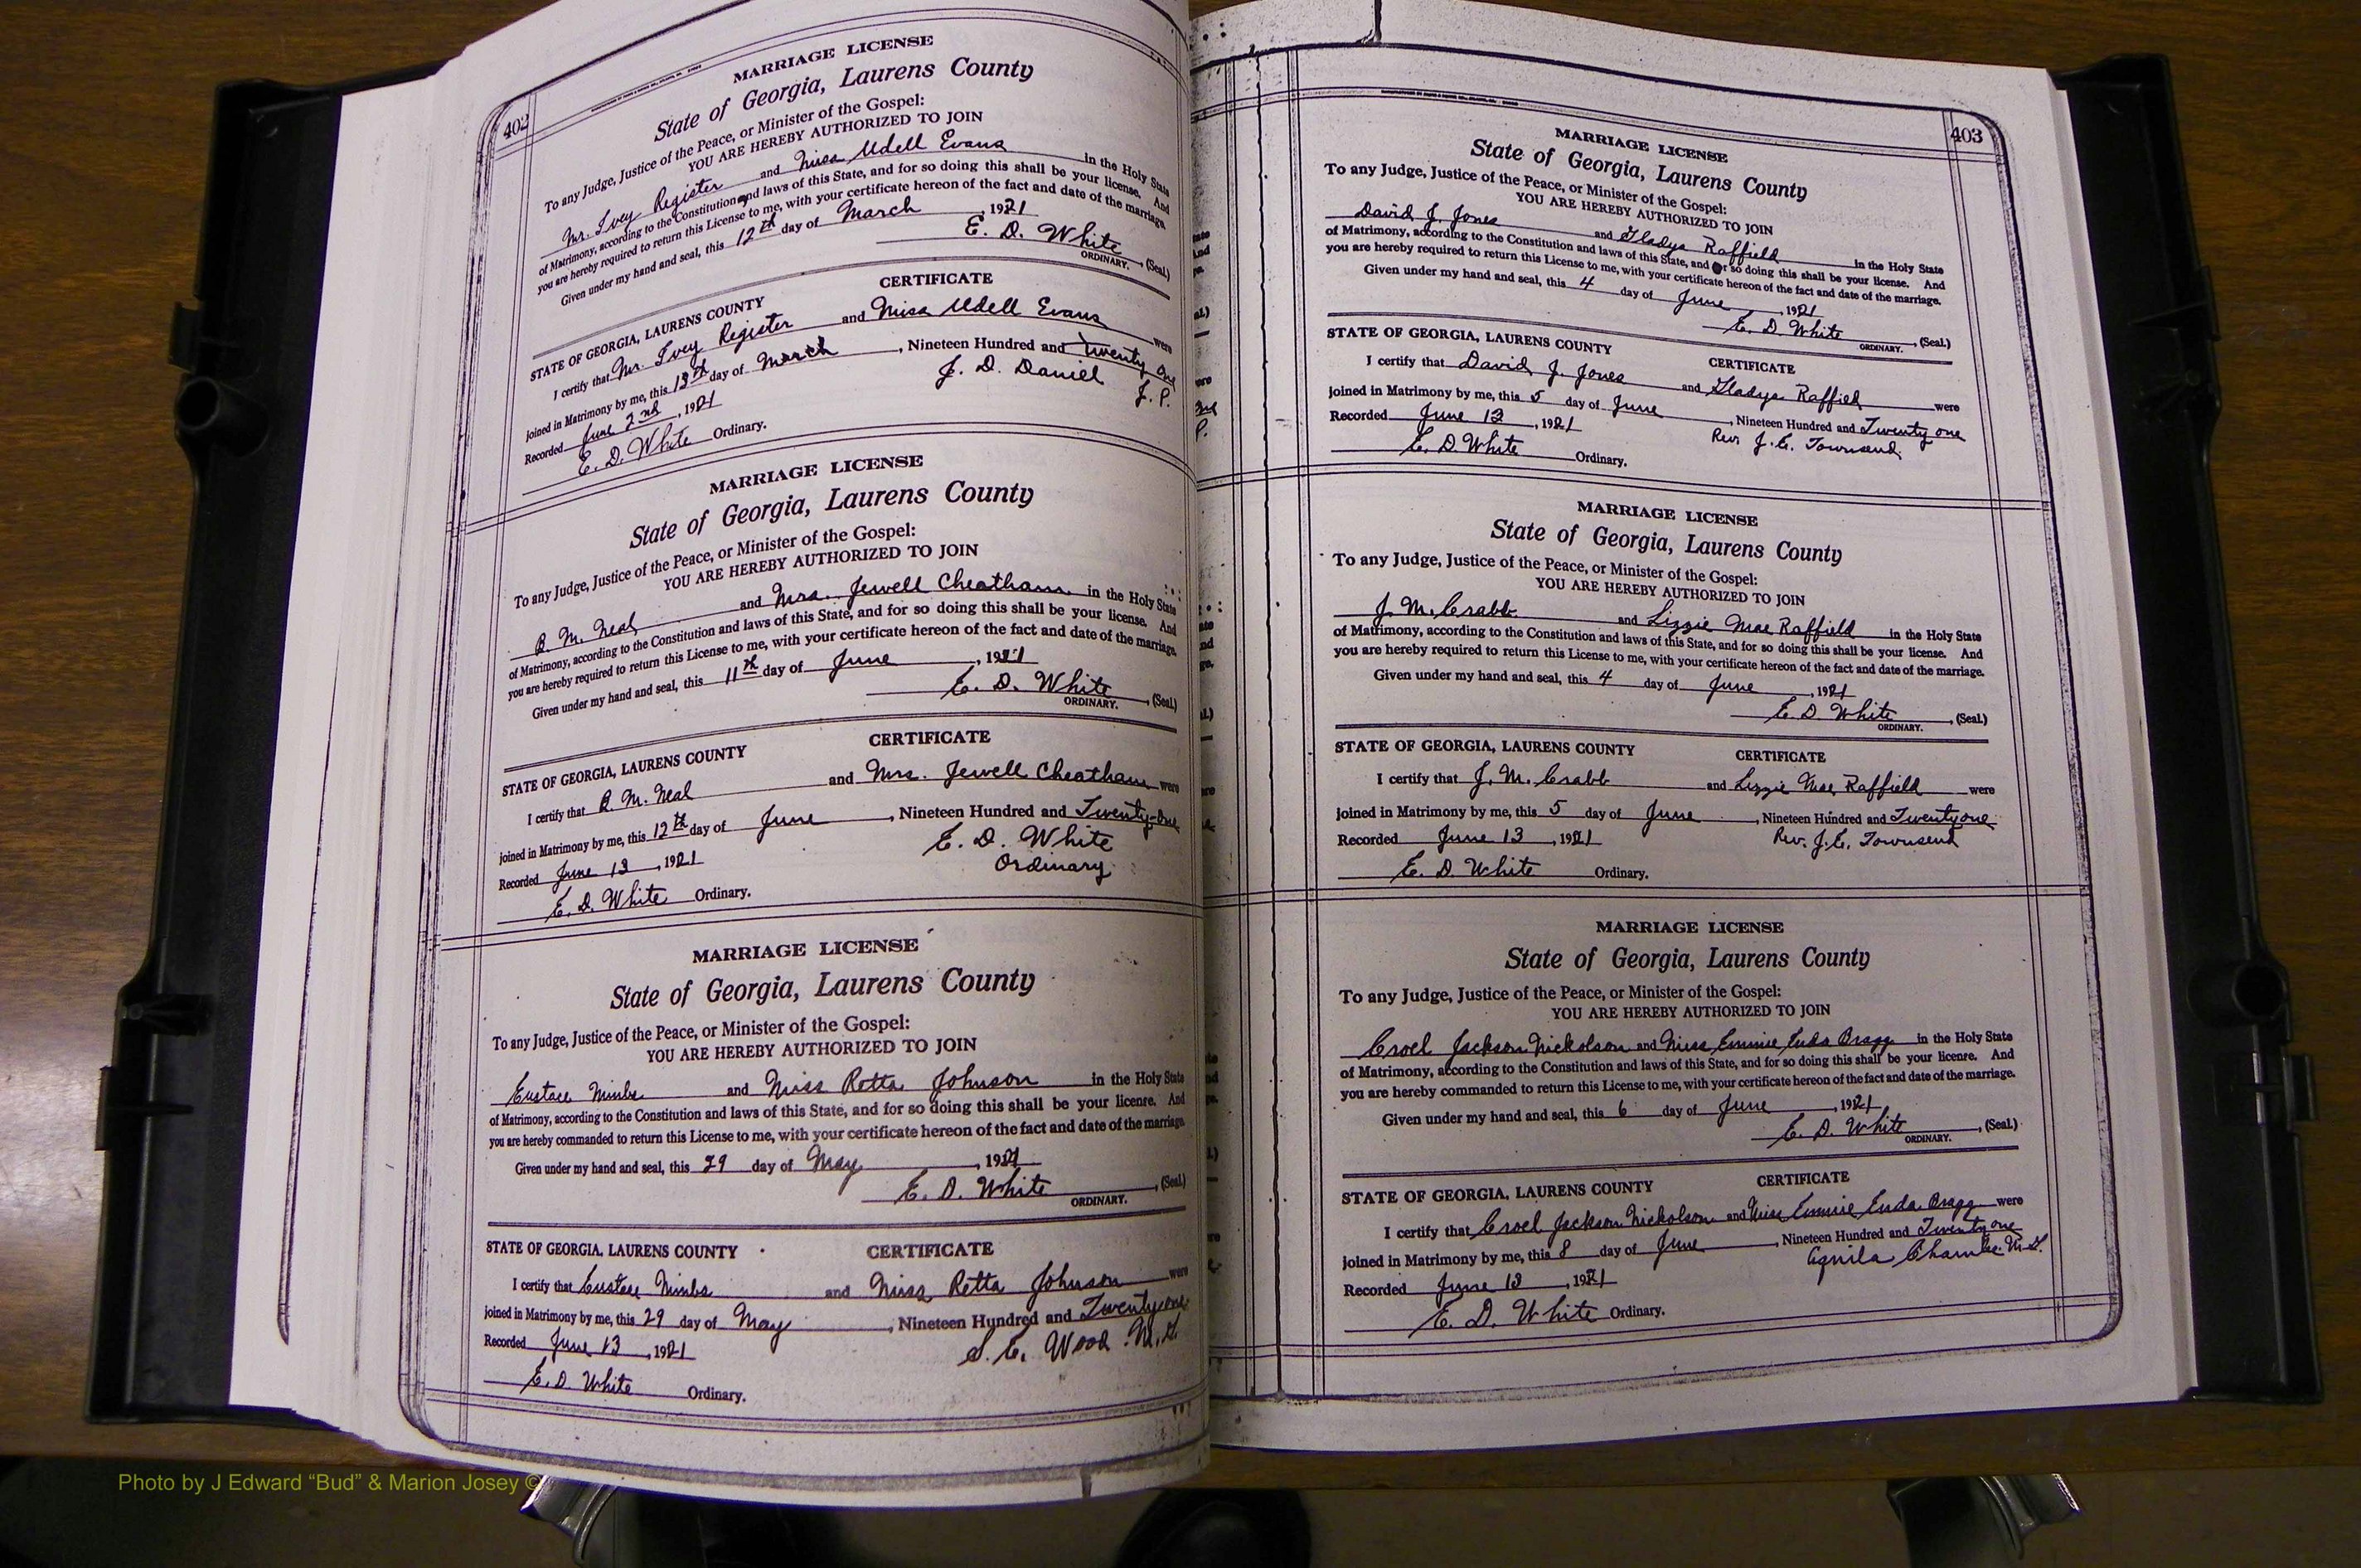 402
MARRIAGE LICENSE
State of Georgia, Laurens County
To any Judge, Justice of the Peace, or Minister of the Gospel:
YOU ARE HEREBY AUTHORIZED TO JOIN
Mr. Ivey Register and Miss Udell Evans in the Holy State
of Matrimony, according to the Constitution and laws of this State, and for so doing this shall be your license. And
you are hereby required to return this License to me, with your certificate hereon of the fact and date of the marriage.
Given under my hand and seal, this 12th day of March, 1921
E. D. White, (Seal.)
ORDINARY.
CERTIFICATE
STATE OF GEORGIA, LAURENS COUNTY
I certify that Mr. Ivey Register and Miss Udell Evans were
joined in Matrimony by me, this 13th day of March, Nineteen Hundred and Twenty One
Recorded June 2nd, 1921 J. D. Daniel
J. P.
E. D. White Ordinary.
MARRIAGE LICENSE
State of Georgia, Laurens County
To any Judge, Justice of the Peace, or Minister of the Gospel:
YOU ARE HEREBY AUTHORIZED TO JOIN
M. Neal and Mrs. Jewell Cheatham in the Holy State
of Matrimony, according to the Constitution and laws of this State, and for so doing this shall be your license. And
you are hereby required to return this License to me, with your certificate hereon of the fact and date of the marriage.
Given under my hand and seal, this 11th day of June, 1921
E. D. White, (Seal.)
ORDINARY.
CERTIFICATE
STATE OF GEORGIA, LAURENS COUNTY
I certify that M. Neal and Mrs. Jewell Cheatham were
joined in Matrimony by me, this 12th day of June, Nineteen Hundred and Twenty-One
Recorded June 13, 1921 E. D. White
Ordinary
E. D. White Ordinary.
MARRIAGE LICENSE
State of Georgia, Laurens County
To any Judge, Justice of the Peace, or Minister of the Gospel:
YOU ARE HEREBY AUTHORIZED TO JOIN
Eustace Nimbs and Miss Retta Johnson in the Holy State
of Matrimony, according to the Constitution and laws of this State, and for so doing this shall be your license. And
you are hereby commanded to return this License to me, with your certificate hereon of the fact and date of the marriage.
Given under my hand and seal, this 29 day of May, 1921
E. D. White, (Seal.)
ORDINARY.
STATE OF GEORGIA, LAURENS COUNTY CERTIFICATE
I certify that Eustace Nimbs and Miss Retta Johnson were
joined in Matrimony by me, this 29 day of May, Nineteen Hundred and Twenty one
Recorded June 13, 1921 S. E. Wood M.G.
E. D. White Ordinary.
403
MARRIAGE LICENSE
State of Georgia, Laurens County
To any Judge, Justice of the Peace, or Minister of the Gospel:
YOU ARE HEREBY AUTHORIZED TO JOIN
David J. Jones and Gladys Raffield in the Holy State
of Matrimony, according to the Constitution and laws of this State, and for so doing this shall be your license. And
you are hereby required to return this License to me, with your certificate hereon of the fact and date of the marriage.
Given under my hand and seal, this 4 day of June, 1921
E. D. White, (Seal.)
ORDINARY.
STATE OF GEORGIA, LAURENS COUNTY CERTIFICATE
I certify that David J. Jones and Gladys Raffield were
joined in Matrimony by me, this 5 day of June, Nineteen Hundred and Twenty one
Recorded June 13, 1921 Rev. J. E. Townsend
E. D. White Ordinary.
MARRIAGE LICENSE
State of Georgia, Laurens County
To any Judge, Justice of the Peace, or Minister of the Gospel:
YOU ARE HEREBY AUTHORIZED TO JOIN
J. M. Crabb and Lizzie Mae Raffield in the Holy State
of Matrimony, according to the Constitution and laws of this State, and for so doing this shall be your license. And
you are hereby required to return this License to me, with your certificate hereon of the fact and date of the marriage.
Given under my hand and seal, this 4 day of June, 1921
E. D. White, (Seal.)
ORDINARY.
STATE OF GEORGIA, LAURENS COUNTY CERTIFICATE
I certify that J. M. Crabb and Lizzie Mae Raffield were
joined in Matrimony by me, this 5 day of June, Nineteen Hundred and Twenty one
Recorded June 13, 1921 Rev. J. E. Townsend
E. D. White Ordinary.
MARRIAGE LICENSE
State of Georgia, Laurens County
To any Judge, Justice of the Peace, or Minister of the Gospel:
YOU ARE HEREBY AUTHORIZED TO JOIN
Croel Jackson Nickolson and Miss Emmie Euda Bragg in the Holy State
of Matrimony, according to the Constitution and laws of this State, and for so doing this shall be your license. And
you are hereby commanded to return this License to me, with your certificate hereon of the fact and date of the marriage.
Given under my hand and seal, this 6 day of June, 1921
E. D. White, (Seal.)
ORDINARY.
STATE OF GEORGIA, LAURENS COUNTY CERTIFICATE
I certify that Croel Jackson Nickolson and Miss Emmie Euda Bragg were
joined in Matrimony by me, this 8 day of June, Nineteen Hundred and Twenty one
Recorded June 13, 1921 Aquila M.G.
E. D. White Ordinary.
Photo by J Edward “Bud” & Marion Josey ©